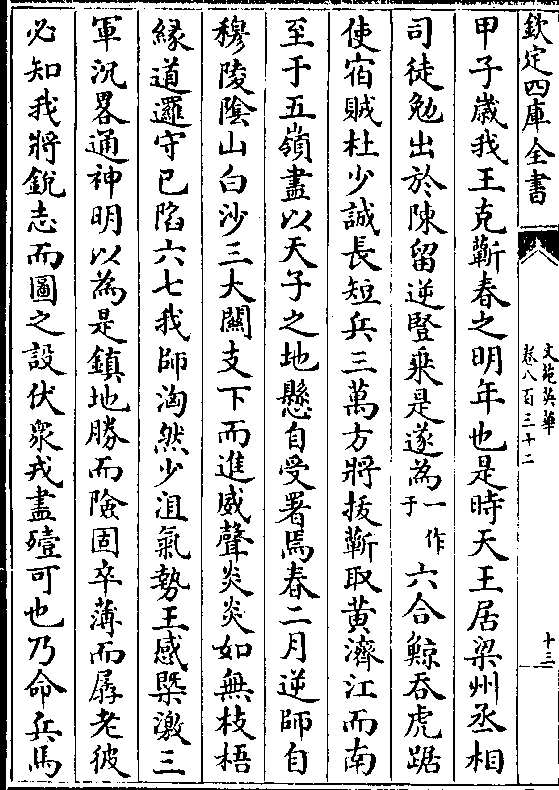 欽定四庫全書
文苑英華
卷八百三十二
十三
甲子歳我王克蘄春之明年也是時天王居梁州丞相
司徒勉出於陳留逆豎乗是遂為一作于六合鯨吞虎踞
使宿賊杜少誠長短兵三萬方將拔蘄取黄濟江而南
至于五嶺盡以天子之地懸自受署焉春二月逆師自
穆陵隂山白沙三大關支下而進威聲炎炎如無枝梧
縁道邏守已陷六七我師洶然少沮氣勢王感槩激三
軍沉畧通神明以為是鎮地勝而險固卒薄而孱老彼
必知我將鋭志而圖之設伏衆戎盡殪可也乃命兵馬